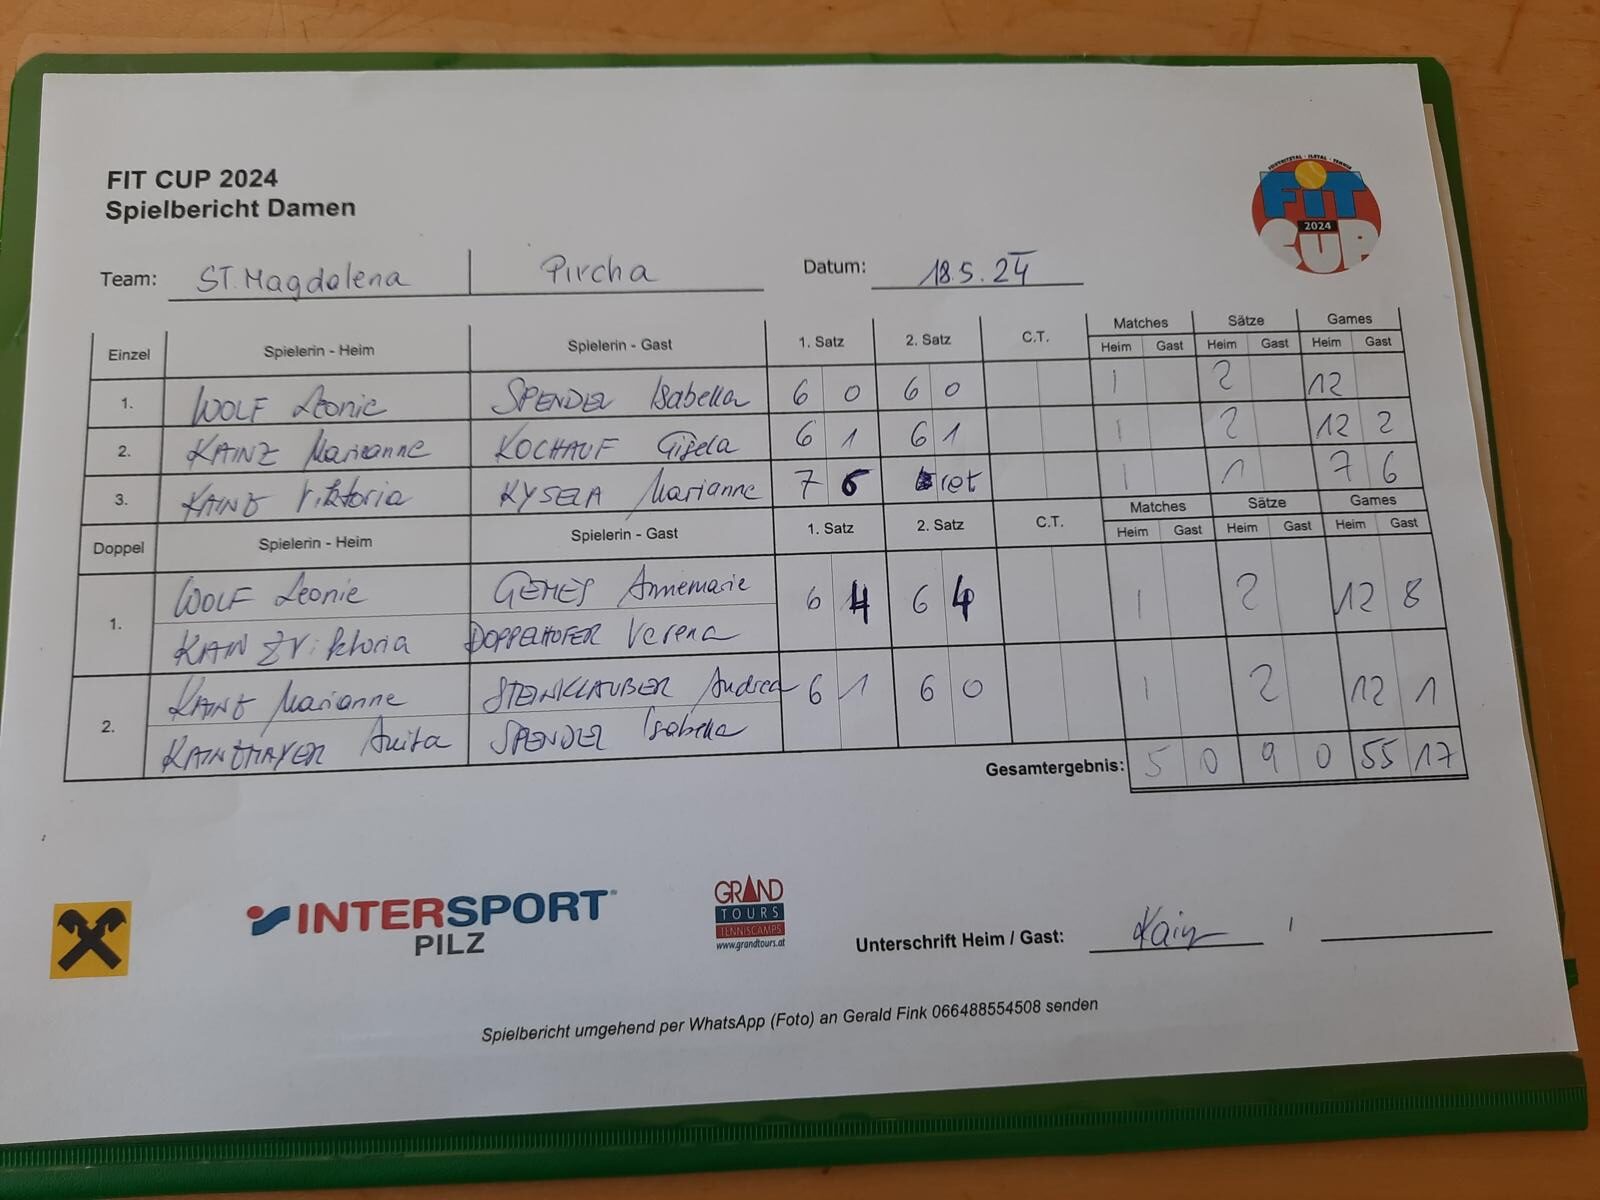 FIT CUP 2024
Spielbericht Damen
FIT
2024
CUP
Team: ST. Magdalena Pircha Datum: 18.5.24
Matches Sätze Games
Einzel Spielerin - Heim Spielerin - Gast 1. Satz 2. Satz C.T. Heim Gast Heim Gast Heim Gast
1. WOLF Leonie SPENDEL Isabella 6 0 6 0 1 2 12
2. KAINZ Marianne KOCHAUF Gisela 6 1 6 1 1 2 12 2
3. KAINZ Viktoria KYSELA Marianne 7 6 ret 1 1 7 6
Matches Sätze Games
Doppel Spielerin - Heim Spielerin - Gast 1. Satz 2. Satz C.T. Heim Gast Heim Gast Heim Gast
1. WOLF Leonie Annemarie 6 4 6 4 1 2 12 8
KAINZ Viktoria DOPPELHOFER Verena
2. KAINZ Marianne STEINKLAUBER Andrea 6 1 6 0 1 2 12 1
Anita SPENDEL Isabella
Gesamtergebnis: 5 0 9 0 55 17
INTERSPORT
PILZ
GRAND
TOURS
TENNISCAMPS
www.grandtours.at
Unterschrift Heim / Gast: Kainz /
Spielbericht umgehend per WhatsApp (Foto) an Gerald Fink 066488554508 senden